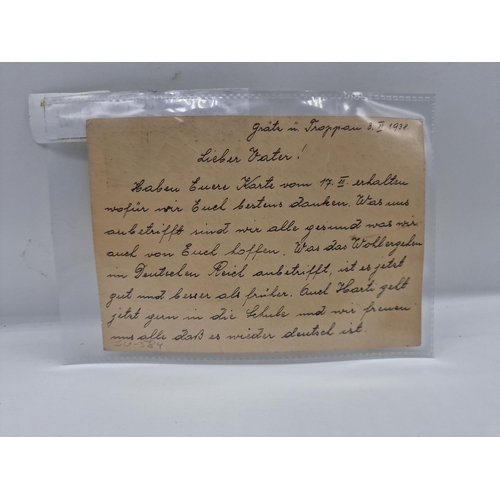 Grätz ü Troppau 3. II 1938
Lieber Vater!
Haben Euere Karte vom 17. II. erhalten
wofür wir Euch bestens danken. Was uns
anbetrifft sind wir alle gesund was wir
auch von Euch hoffen. Was das Wohlergehen
im Deutschen Reich anbetrifft, ist es jetzt
gut und besser als früher. Auch geht
jetzt gern in die Schule und wir freuen
uns alle daß es wieder deutsch ist.